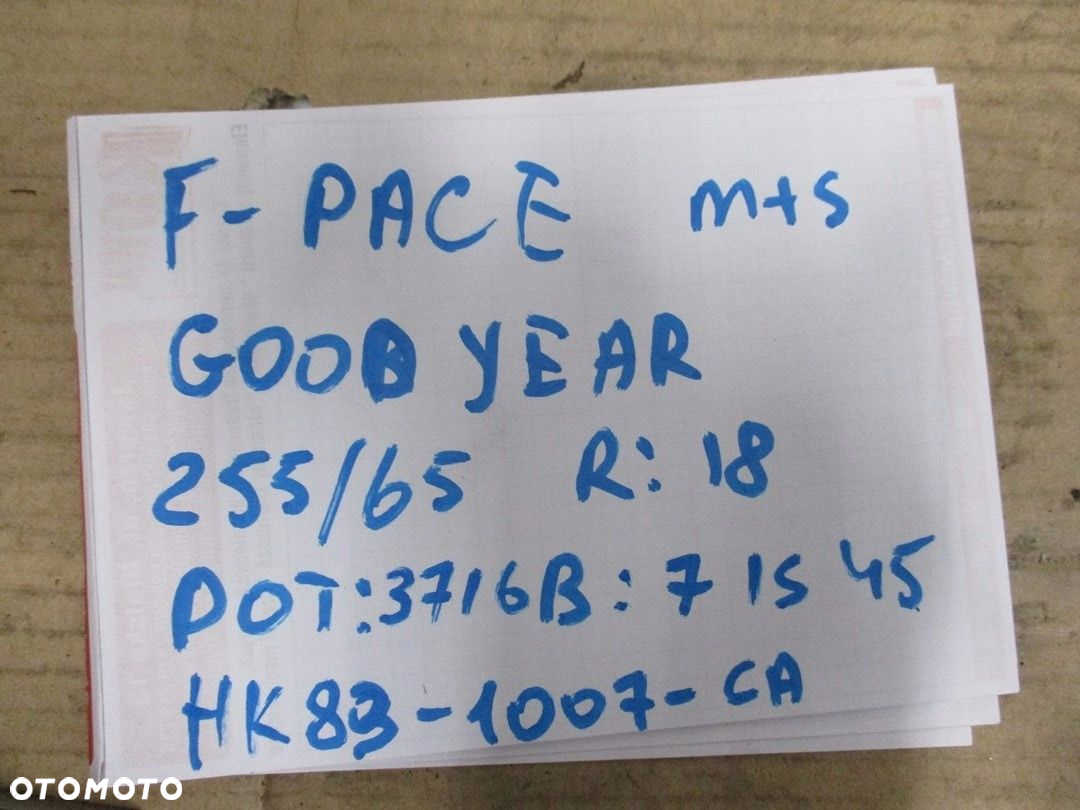 F-PACE m+s
GOOD YEAR
255/65 R: 18
DOT:3716 B: 7 IS 45
HK83-1007-CA
OTOMOTO